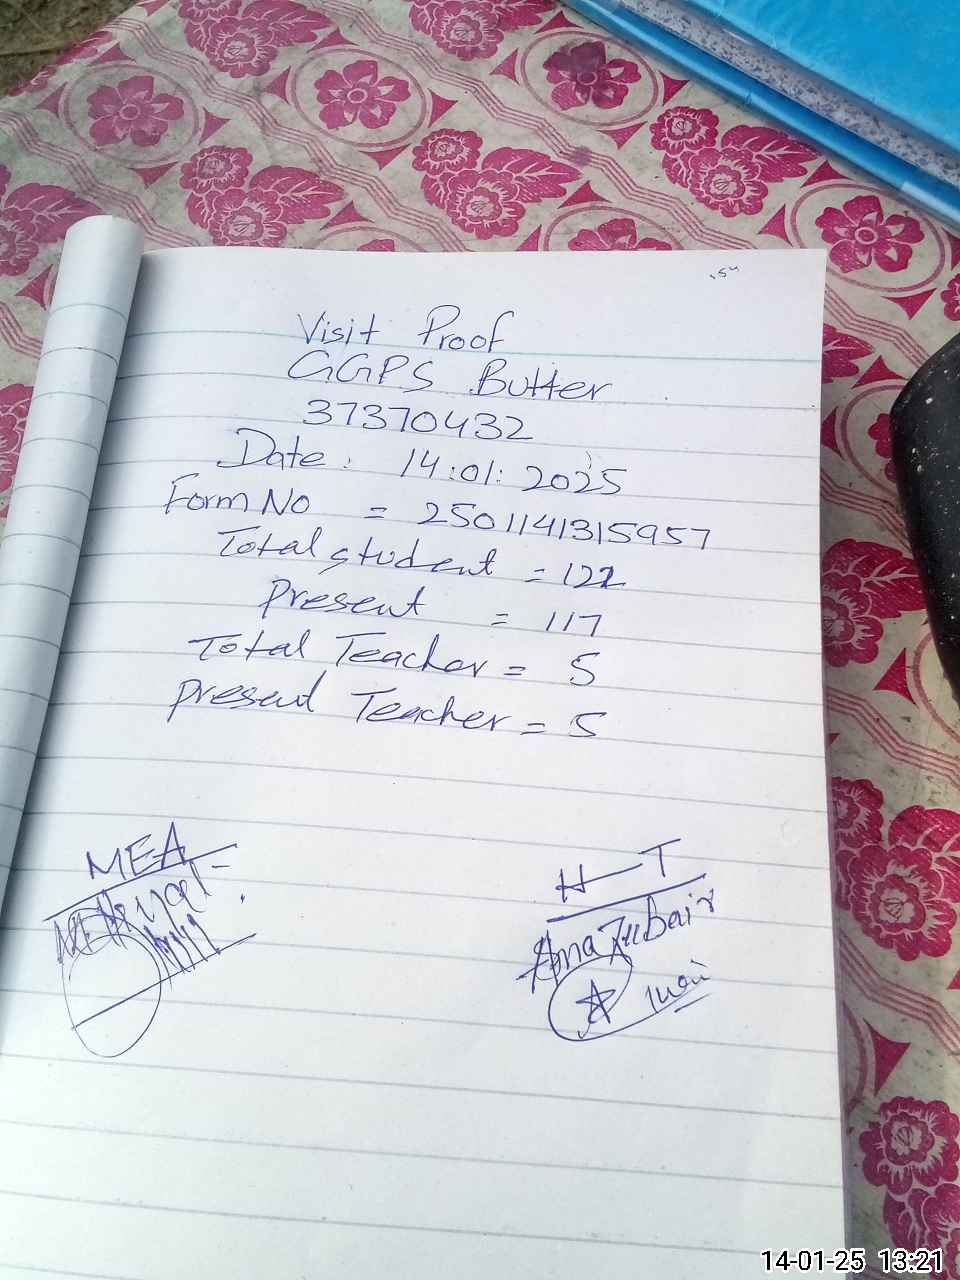 Visit Proof
GGPS Butter
37370432
Date: 14:01:2025
Form No = 2501141315957
Total student = 121
Present = 117
Total Teacher = 5
Present Teacher = 5
MEA
H-T
Zubair
14-01-25 13:21